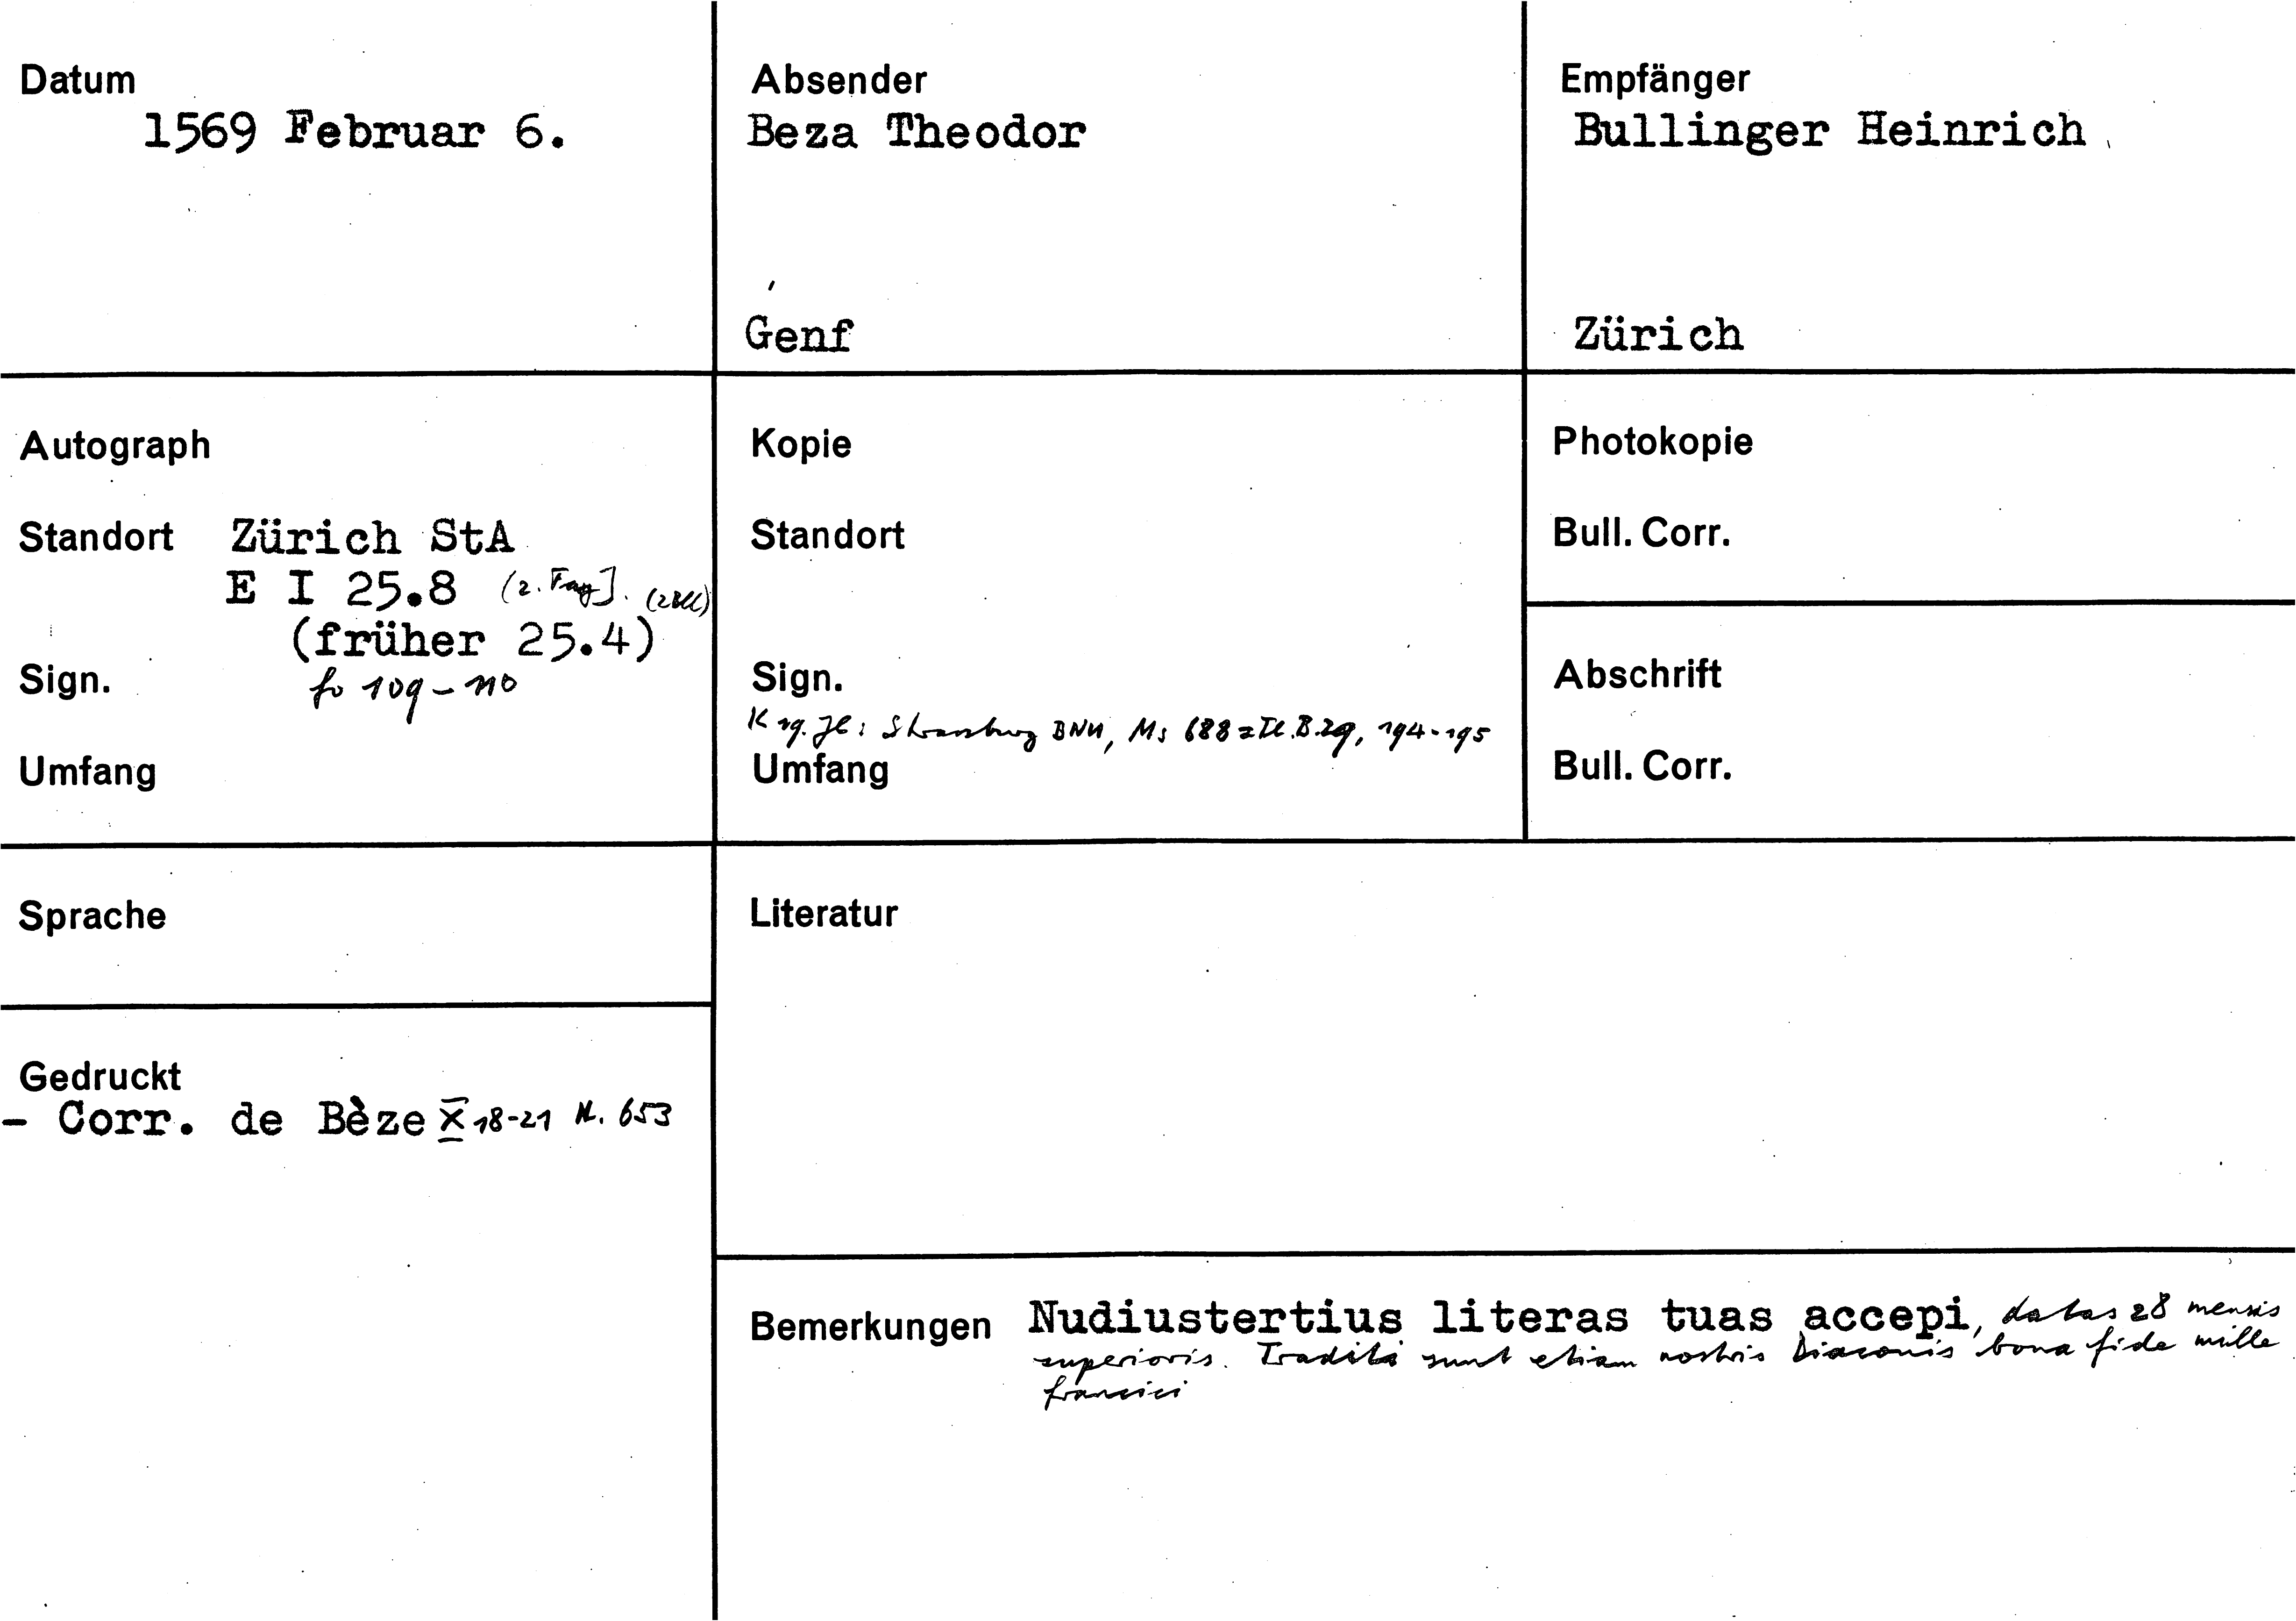 Datum
1569 Februar 6.
Absender
Beza Theodor
Genf
Empfänger
Bullinger Heinrich
Zürich
Autograph
Standort Zürich StA
E I 25.8 (2. Fasz].
(früher 25.4)
Sign. fo 109-110
Umfang
Kopie
Standort
Sign.
K 19. Jh: Strassburg BNU, Ms 688 = Th. B. 29, 194-195
Umfang
Photokopie
Bull. Corr.
Abschrift
Bull. Corr.
Sprache
Literatur
Gedruckt
- Corr. de Bèze X 18-21 Nr. 653
Bemerkungen Nudiustertius literas tuas accepi, datas 28 mensis
superioris. Traditi sunt etiam nostris Diaconis bona fide mille
francici